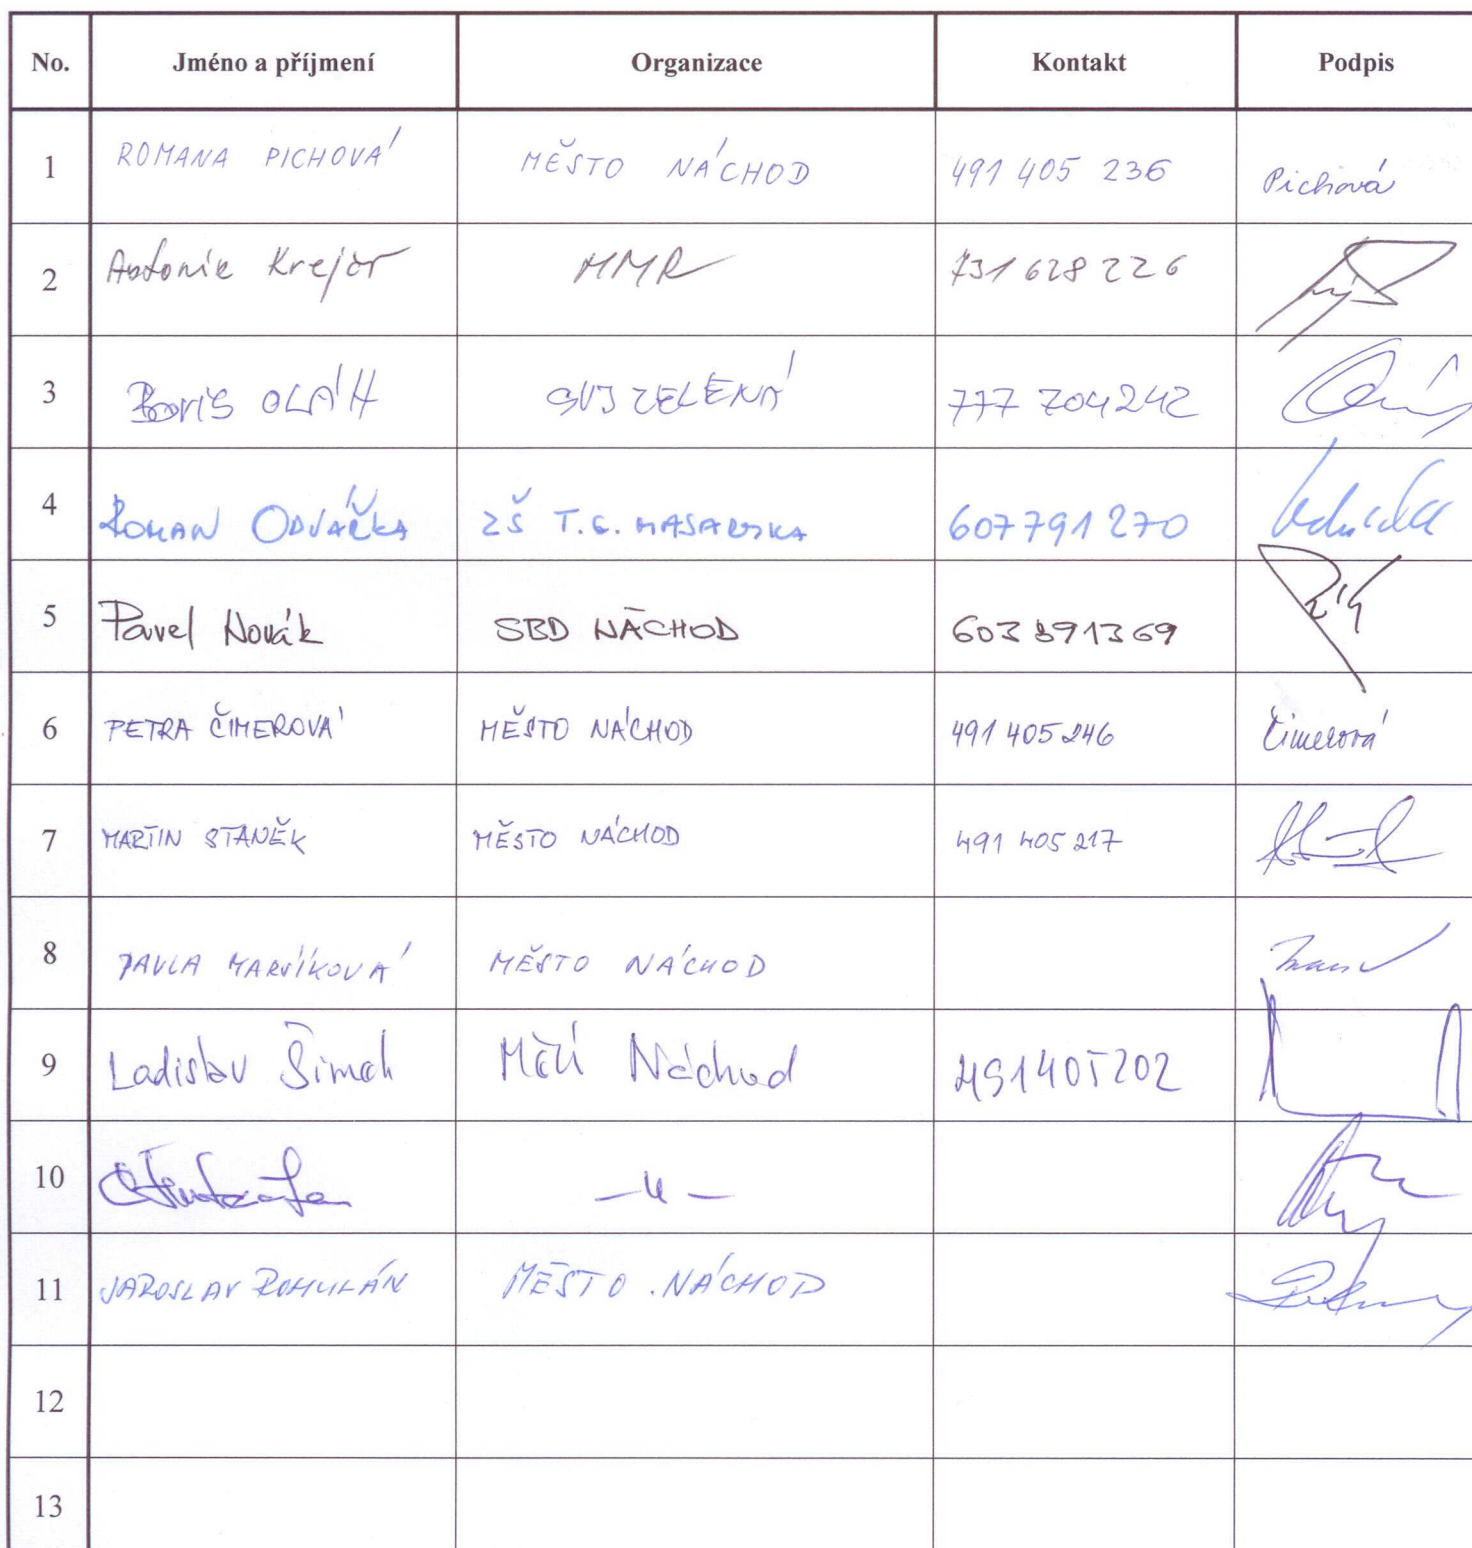 No. Jméno a příjmení Organizace Kontakt Podpis
1 ROMANA PICHOVÁ MĚSTO NÁCHOD 491 405 236 Pichová
2 Krejčí MMR 731 628 226
3 Boris OLÁH SVJ ZELENÁ 777 704 242
4 ROMAN ODVÁŘKA ZŠ T.G. MASARYKA 607 791 270
5 Pavel Novák SBD NÁCHOD 603 891369
6 PETRA ČIMEROVÁ MĚSTO NÁCHOD 491 405 246 Čimerová
7 MARTIN STANĚK MĚSTO NÁCHOD 491 405 217
8 PAVLA MARŠÍKOVÁ MĚSTO NÁCHOD
9 Ladislav Náchod 491405202
10 —"—
11 JAROSLAV ROHULÁN MĚSTO NÁCHOD
12
13